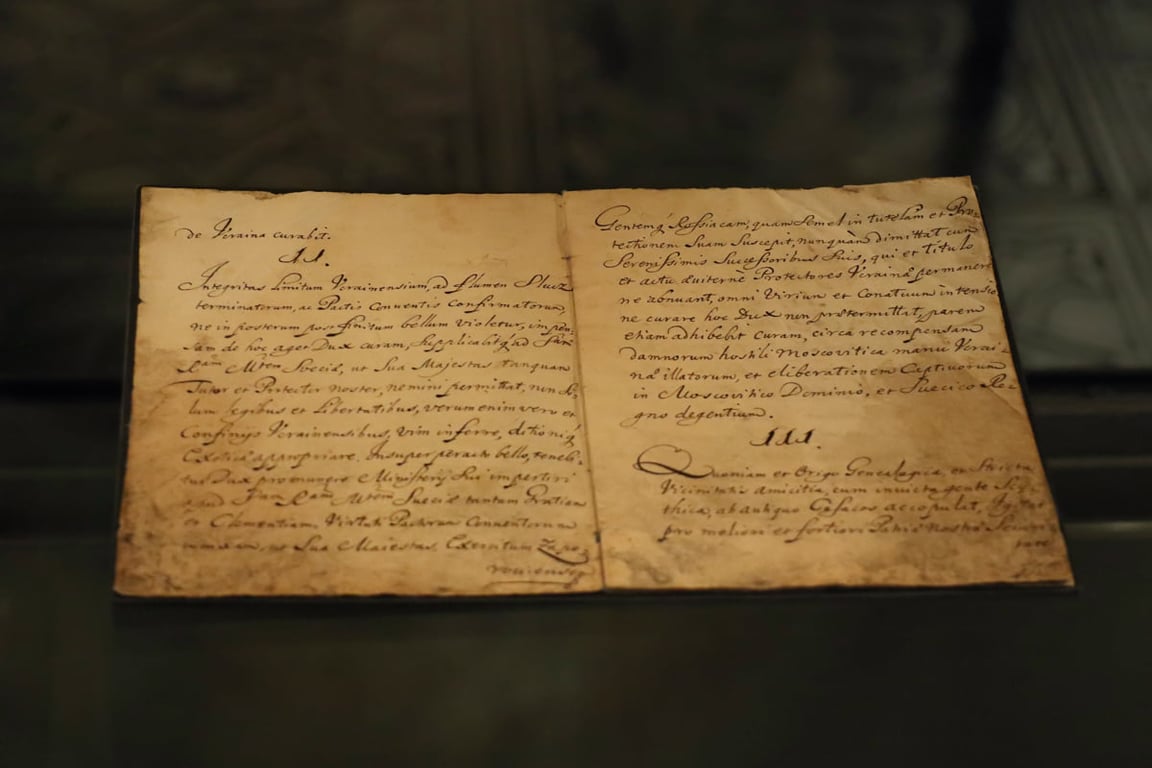 de Vcraina curabit.
II.
Integritas Limitum Vcrainensium, ad flumen Slucz
terminatorum, ac Pactis Conventis Confirmatorum,
ne in posterum post finitum bellum violetur,
de hoc aget Dux curam, Supplicabitq ad
Mtem Sueciæ, ut Sua Majestas tanquam
Tutor et Protector noster, nemini permittat, non So-
lum Legibus et Libertatibus, verum enim vero et
Confinijs Vcrainensibus, vim inferre, ditioniq
Exoticæ appropriare. Insuper peracto bello, teneb-
tur Dux pro munere Ministerij Sui impertiri
apud Mtem Sueciæ tantum Gratiam
et Clementiam, Virtute Pactorum Conventorum
ut Sua Maiestas, Exercitum Zapo-
roviensem
Gentemq Rossiacam, quam Semel in tutelam et Pro-
tectionem Suam Suscepit, nunquam dimittat cum
Serenissimis Successoribus Suis, qui et titulo
et actu æviterne Protectores Vcrainæ permanere
ne abnuant, omni Virium et Conatuum intensio-
ne curare hoc Dux non prætermittat, parem
etiam adhibebit curam, circa recompensam
damnorum hostili Moscovitica manu Vcrai-
næ illatorum, et eliberationem Captivorum
in Moscovitico Dominio, et Suecico Re-
gno degentium.
III.
Quoniam et Origo Genealogica, et Stricta
Vicinitatis amicitia, cum invicta gente Scy-
thica, ab antiquo Cosacos accopulat,
pro meliori et fortiori Patriæ Nostræ Securi-
tate